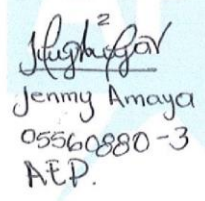 Jenmy Amaya
05560880-3
AEP.